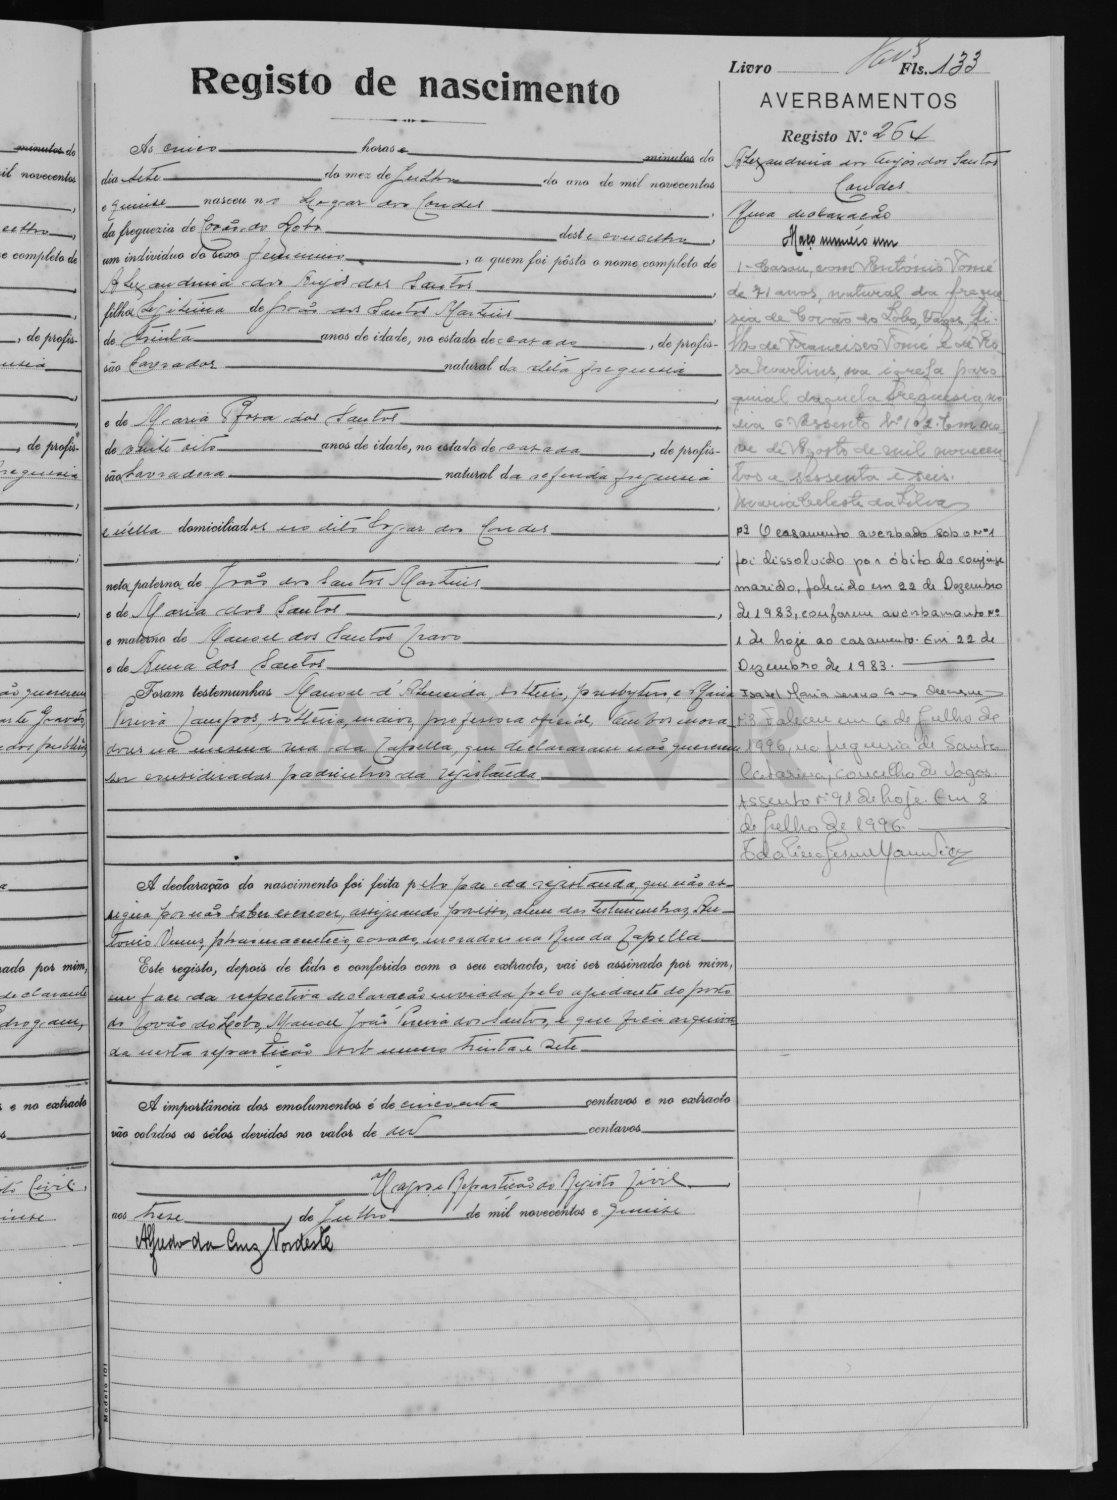 Livro Fls. 133
Registo de nascimento
AVERBAMENTOS
Registo N.º 264
Às cinco horas e minutos do
dia sete do mez de Julho do ano de mil novecentos
e quinse nasceu no Logar dos Condes
da freguezia de Covão do Lobo deste concelho,
um individuo do sexo feminino, a quem foi pôsto o nome completo de
Alexandrina dos Anjos dos Santos
filha legitima de João dos Santos Martins
de trinta anos de idade, no estado de casado, de profis-
são Lavrador natural da dita freguesia
e de Maria Rosa dos Santos
de vinte oito anos de idade, no estado de casada, de profis-
são Lavradora natural da referida freguesia
e nella domiciliados no dito Logar dos Condes
neta paterna de João dos Santos Martins
e de Maria dos Santos
e materna de Manoel dos Santos
e de Anna dos Santos
Foram testemunhas Manoel d'Almeida, solteiro, presbytero, e Maria
Pereira Campos, solteira, maior, professora oficial, ambos mora
dores na mesma rua da Capella, que declararam não quererem
ser considerados padrinhos da registanda
A declaração do nascimento foi feita pelo pae da registanda, que não as-
signa por não saber escrever, assignando por isso, alem das testemunhas, An-
tonio, pharmaceutico, casado, morador na Rua da Capella
Este registo, depois de lido e conferido com o seu extracto, vai ser assinado por mim,
em face da respectiva declaração enviada pelo ajudante do posto
do Covão do Lobo, Manoel João Pereira dos Santos, e que fica arquiva
da nesta repartição sob numero trinta e sete
A importância dos emolumentos é de cincoenta centavos e no extracto
vão colados os sêlos devidos no valor de dez centavos
Vagos e Repartição do Registo Civil
aos treze de Julho de mil novecentos e quinse
Alfredo da Cruz Nordeste
Alexandrina dos Anjos dos Santos
Condes
Uma declaração
Maço numero um
1 - Casou com António Tomé
de 21 anos, natural da fregue
sia de Covão do Lobo, Vagos, fi-
lho de Francisco Tomé e de Ro
sa Martins, na igreja paro
quial daquela freguesia, no
dia 6 Assento Nº 102. Em
de Agosto de mil novecen
tos e sessenta e seis.
Maria Celeste da Silva
nº2 O casamento averbado sob o nº1
foi dissolvido por óbito do conjuge
marido, falecido em 22 de Dezembro
de 1983, conforme averbamento nº
1 de hoje ao casamento. Em 22 de
Dezembro de 1983.
Isabel Maria
nº3 Faleceu em 6 de Julho de
1996, na freguesia de Santa
Catarina, concelho de Vagos.
Assento nº 91 de hoje. Em 8
de Julho de 1996.
ADAVR
Modelo 101
minutos do
mil novecentos
e completo de
, de profis-
, de profis-
freguesia
rado por mim,
e no extracto
Civil.